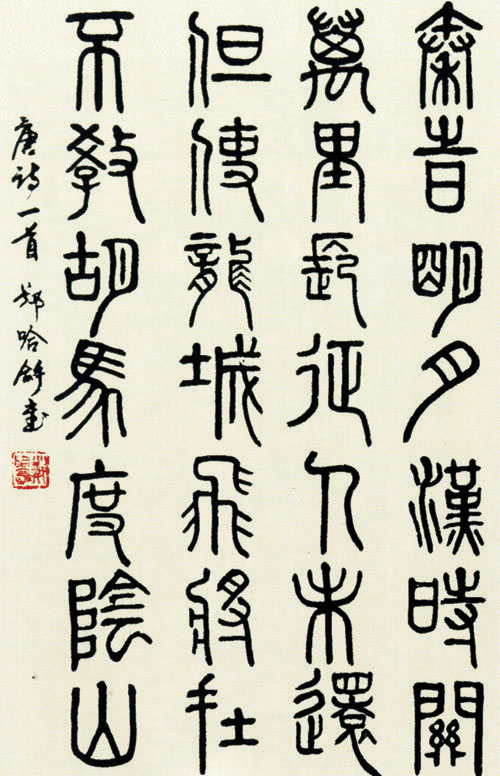 秦旹明月漢時關
萬里長征人未還
但使龍城飛將在
不教胡馬度陰山
唐詩一首 鄭哈舒書